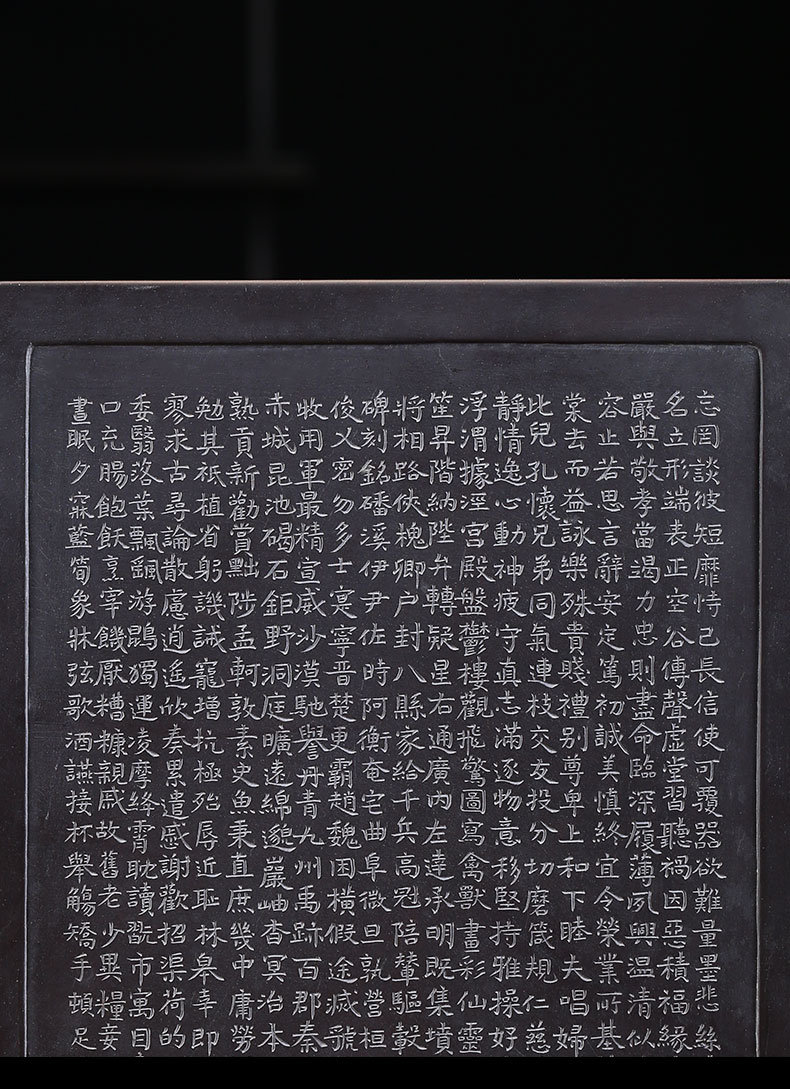 忘罔談彼短靡恃己長信使可覆器欲難量墨悲絲
名立形端表正空谷傳聲虛堂習聽禍因惡積福緣
嚴與敬孝當竭力忠則盡命臨深履薄夙興温清似
容止若思言辭安定篤初誠美慎終宜令榮業所基
棠去而益詠樂殊貴賤禮别尊卑上和下睦夫唱婦
此兒孔懷兄弟同氣連枝交友投分切磨箴規仁慈
靜情逸心動神疲守真志滿逐物意移堅持雅操好
浮渭據涇宮殿盤鬱樓觀飛驚圖寫禽獸畫彩仙靈
笙昇階納陛弁轉疑星右通廣內左達承明既集墳
將相路俠槐卿户封八縣家給千兵高冠陪輦驅轂
碑刻銘磻溪伊尹佐時阿衡奄宅曲阜微旦孰營桓
俊乂密勿多士寔寧晉楚更霸趙魏困橫假途滅虢
牧用軍最精宣威沙漠馳譽丹青九州禹跡百郡秦
赤城昆池碣石鉅野洞庭曠遠綿邈巖岫杳冥治本
熟貢新勸賞黜陟孟軻敦素史魚秉直庶幾中庸勞
勉其祗植省躬譏誡寵增抗極殆辱近恥林皋幸即
寥求古尋論散慮逍遙欣奏累遣慼謝歡招渠荷的
委翳落葉飄颻游鵾獨運凌摩絳霄耽讀翫市寓目
口充腸飽飫烹宰饑厭糟糠親戚故舊老少異糧妾
晝眠夕寐藍筍象牀弦歌酒讌接杯舉觴矯手頓足